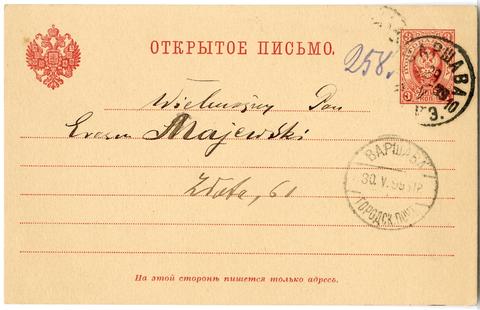 ОТКРЫТОЕ ПИСЬМО.
258.
ВАРШАВА
3.
Wielmożny Pan
Erazm Majewski
Złota, 61
ВАРШАВА
30. V. 99
ГОРОДСК. ПОЧТ.
На этой сторонѣ пишется только адресъ.